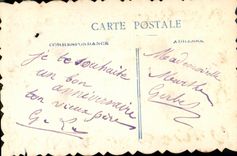 CARTE POSTALE
CORRESPONDANCE
ADRESSE
je te souhaite
un bon
anniversaire
ton vieux père
Mademoiselle